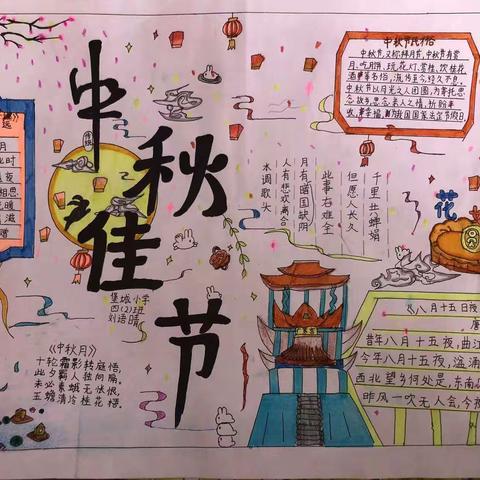 中秋佳节
传统
月
此时
夜
相思
光暖
滋
赠
中秋节民俗
中秋节,又称拜月节,中秋节有赏
月、吃月饼、玩花灯、赏桂、饮桂花
酒等民俗,流传至今,经久不息。
中秋节以月光之人团圆,为寄托思
念故乡,思念亲人之情,祈盼丰
收、幸福,
为我国国家法定节假日。
水调歌头
人有悲欢离合
月有暗圆缺阴
此事古难全
但愿人长久
千里共婵娟
堡城小学
四(2)班
刘语晴
《中秋月》
十轮霜影转庭梧,
此夕羁人独向隅。
未必素娥无怅恨,
玉蟾清冷桂花
花
《八月十五日夜
唐
昔年八月十五夜,曲江
今年八月十五夜,湓浦
西北望乡何处是,东南
昨风一吹无人会,今夜